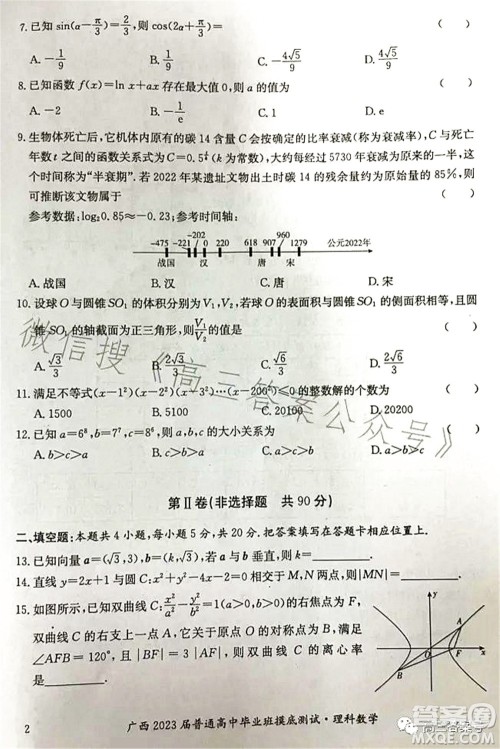 7. 已知 sin(α-π/3)=2/3, 则 cos(2α+π/3)= ( )
A. -1/9 B. 1/9 C. -4√5/9 D. 4√5/9
8. 已知函数 f(x)=ln x+ax 存在最大值 0, 则 a 的值为 ( )
A. -2 B. -1/e C. 1 D. e
9. 生物体死亡后, 它机体内原有的碳 14 含量 C 会按确定的比率衰减(称为衰减率), C 与死亡
年数 t 之间的函数关系式为 C=0.5^(t/k) (k 为常数), 大约每经过 5730 年衰减为原来的一半, 这
个时间称为“半衰期”. 若 2022 年某遗址文物出土时碳 14 的残余量约占原始量的 85%, 则
可推断该文物属于 ( )
参考数据: log₂0.85≈-0.23; 参考时间轴:
-475 -221 -202 0 220 618 907 960 1279 公元2022年
战国 汉 唐 宋
A. 战国 B. 汉 C. 唐 D. 宋
10. 设球 O 与圆锥 SO₁ 的体积分别为 V₁, V₂, 若球 O 的表面积与圆锥 SO₁ 的侧面积相等, 且圆
锥 SO₁ 的轴截面为正三角形, 则 V₁/V₂ 的值是 ( )
A. √3/3 B. 2√3/3 C. √6/3 D. 2√6/3
11. 满足不等式(x-1²)(x-2²)(x-3²)…(x-200²)≤0 的整数解的个数为 ( )
A. 1500 B. 5100 C. 20100 D. 20200
12. 已知 a=6⁸, b=7⁷, c=8⁶, 则 a, b, c 的大小关系为 ( )
A. b>c>a B. c>b>a C. a>c>b D. a>b>c
第Ⅱ卷(非选择题 共 90 分)
二、填空题: 本题共 4 小题, 每小题 5 分, 共 20 分. 把答案填写在答题卡相应位置上.
13. 已知向量 a=(√3,3), b=(√3,m), 若 a 与 b 垂直, 则 m=______.
14. 直线 y=2x+1 与圆 C: x²+y²-4x=0 相交于 M, N 两点, 则|MN|=______.
15. 如图所示, 已知双曲线 C: x²/a²-y²/b²=1(a>0,b>0)的右焦点为 F,
双曲线 C 的右支上一点 A, 它关于原点 O 的对称点为 B, 满足
∠AFB=120°, 且 |BF|=3|AF|, 则双曲线 C 的离心率
是______.
y
A
O F x
B
2 广西 2023 届普通高中毕业班摸底测试·理科数学
微信搜《高三答案公众号》